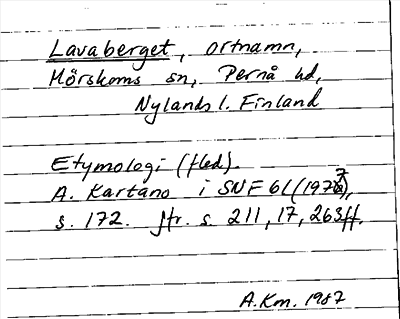 Lavaberget, ortnamn,
Mörskoms sn, Pernå hd,
Nylands l. Finland
Etymologi (fled).
A. Kartano i SNF 61 (1977),
s. 172. Jfr. s. 211, 17, 263ff.
A.Km. 1987